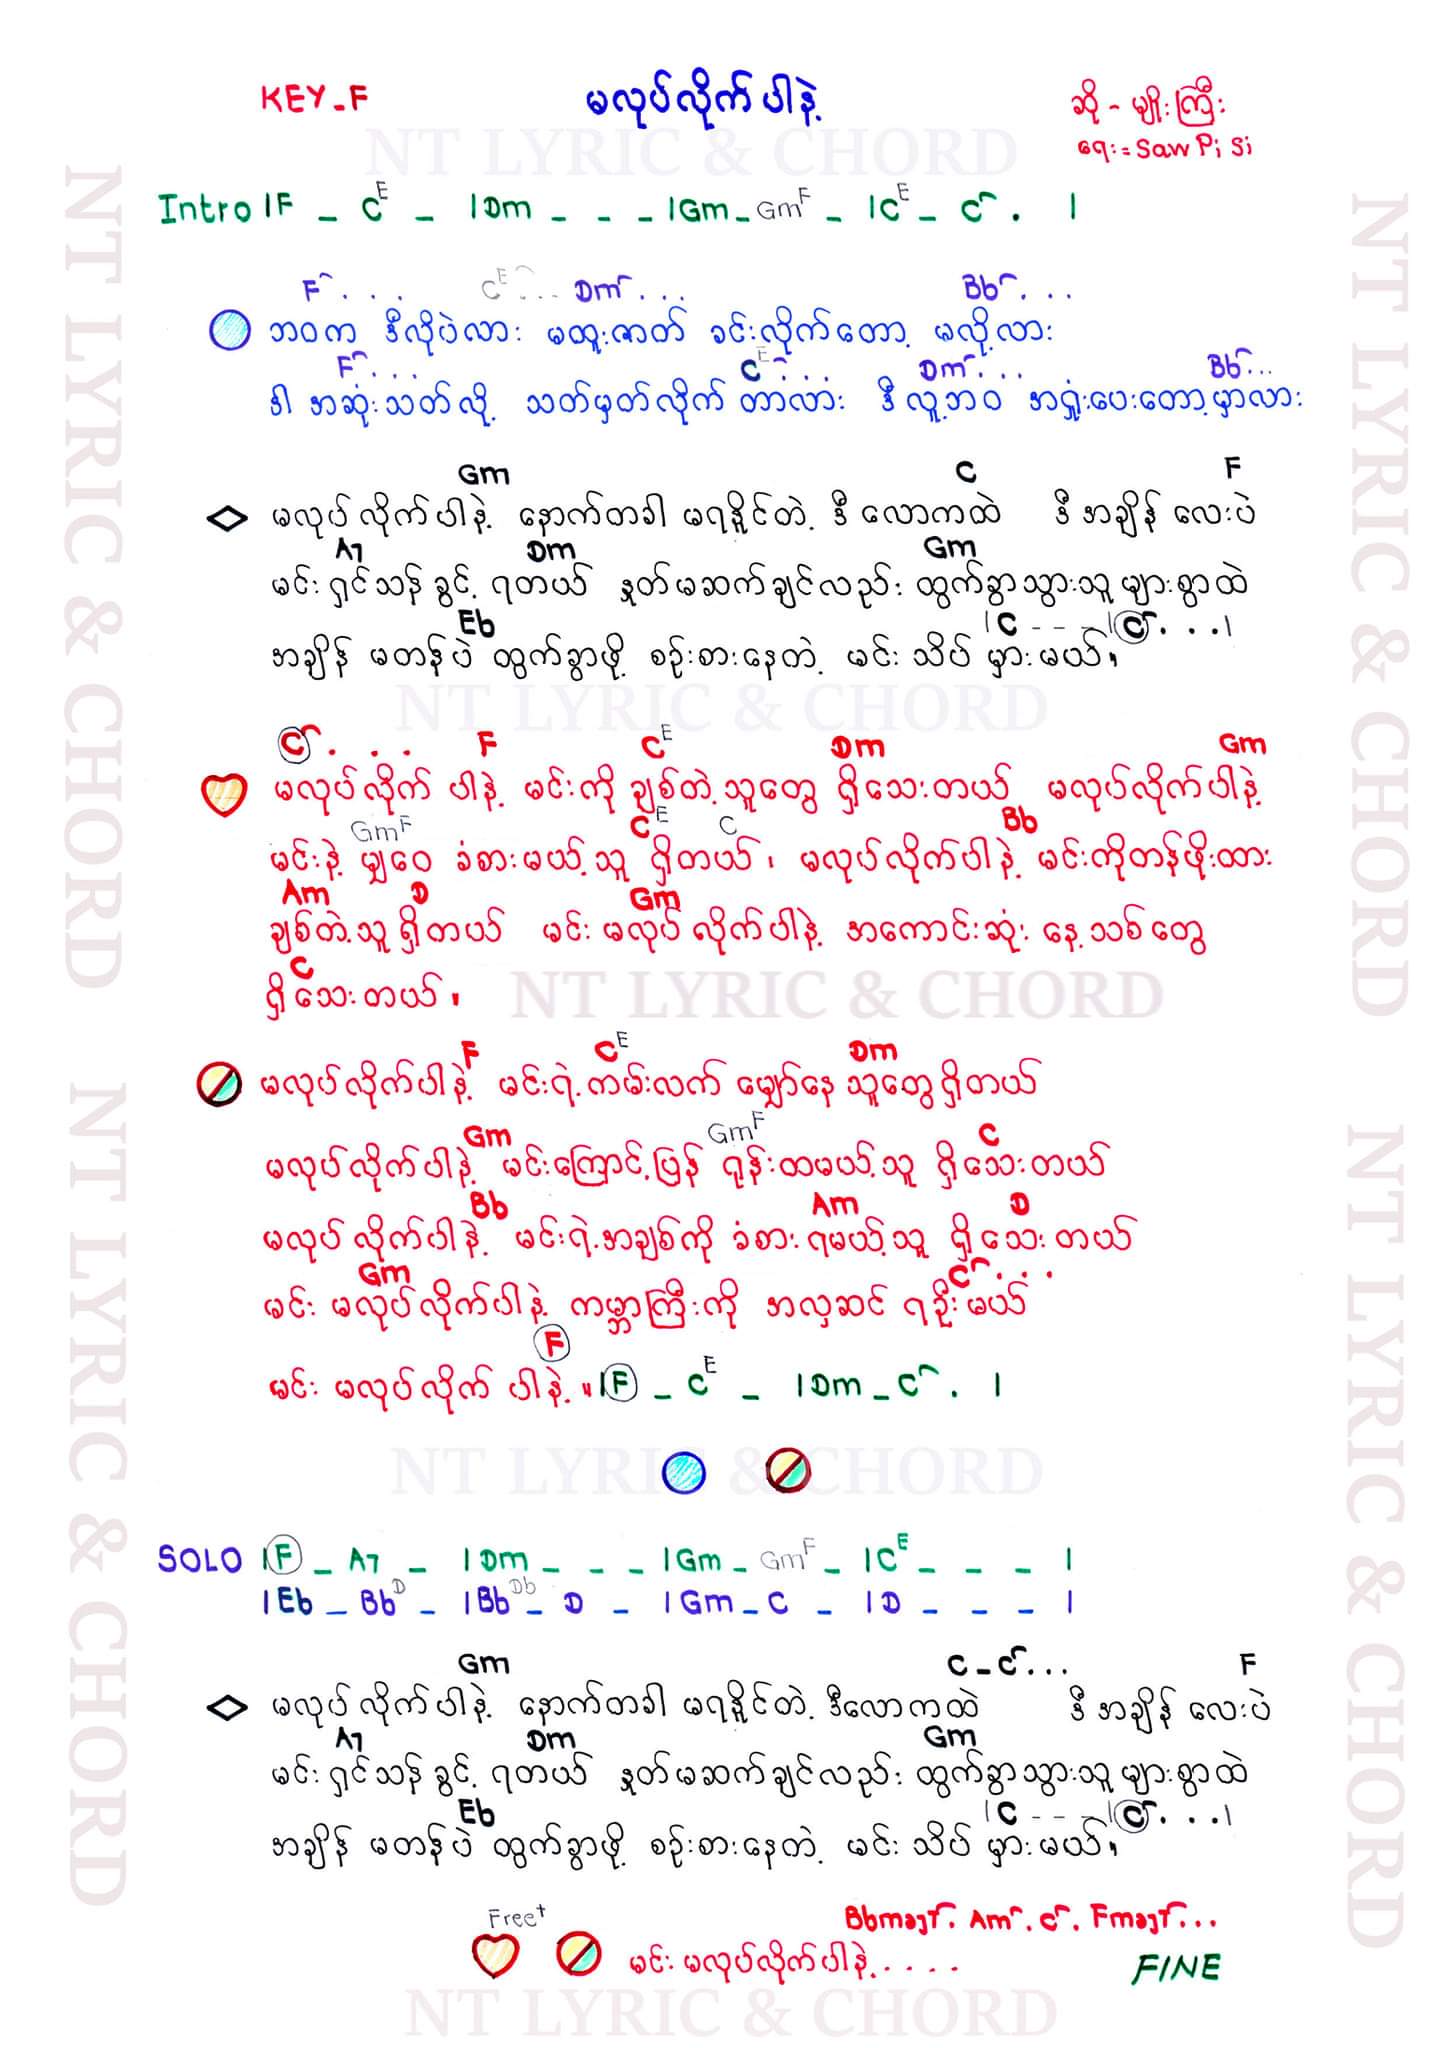 KEY_F
မလုပ်လိုက်ပါနဲ့
ဆို - မျိုးကြီး
ရေး = Saw Pi Si
NT LYRIC & CHORD
Intro |F _ C E _ |Dm _ _ _ |Gm _ Gm F _ |C E _ C . |
F . . . C E . . . Dm . . . Bb . . .
ဘဝက ဒီလိုပဲလား မထူးဇာတ် ခင်းလိုက်တော့ မလို့လား
F . . . C E . . . Dm . . . Bb . . .
ဒါ အဆုံးသတ်လို့ သတ်မှတ်လိုက် တာလား ဒီ လူ့ဘဝ အရှုံးပေးတော့မှာလား
Gm C F
မလုပ်လိုက်ပါနဲ့ နောက်တခါ မရနိူင်တဲ့ ဒီ လောကထဲ ဒီ အချိန် လေးပဲ
A7 Dm Gm
မင်း ရှင်သန်ခွင့် ရတယ် နှုတ်မဆက်ချင်လည်း ထွက်ခွာသွားသူ များစွာထဲ
Eb |C - - - |C . . . |
အချိန် မတန်ပဲ ထွက်ခွာဖို့ စဉ်းစားနေတဲ့ မင်း သိပ် မှားမယ်၊
NT LYRIC & CHORD
C . . . F C E Dm Gm
မလုပ်လိုက် ပါနဲ့ မင်းကို ချစ်တဲ့သူတွေ ရှိသေးတယ် မလုပ်လိုက်ပါနဲ့
Gm F C E C Bb
မင်းနဲ့ မျှဝေ ခံစားမယ့်သူ ရှိတယ်၊ မလုပ်လိုက်ပါနဲ့ မင်းကိုတန်ဖိုးထား
Am D Gm
ချစ်တဲ့သူ ရှိတယ် မင်း မလုပ်လိုက်ပါနဲ့ အကောင်းဆုံး နေ့သစ်တွေ
C
ရှိသေးတယ်၊
NT LYRIC & CHORD
F C E Dm
မလုပ်လိုက်ပါနဲ့ မင်းရဲ့ကမ်းလက် မျှော်နေ သူတွေရှိတယ်
Gm Gm F C
မလုပ်လိုက်ပါနဲ့ မင်းကြောင့်ပြန် ရုန်းထမယ့်သူ ရှိသေးတယ်
Bb Am D
မလုပ်လိုက်ပါနဲ့ မင်းရဲ့အချစ်ကို ခံစားရမယ့်သူ ရှိသေးတယ်
Gm C . . .
မင်း မလုပ်လိုက်ပါနဲ့ ကမ္ဘာကြီးကို အလှဆင် ရဦးမယ်
F
မင်း မလုပ်လိုက် ပါနဲ့ ။ |F _ C E _ |Dm _ C . |
NT LYRIC & CHORD
SOLO |F _ A7 _ |Dm _ _ _ |Gm _ Gm F _ |C E _ _ _ |
|Eb _ Bb D _ |Bb Db _ D _ |Gm _ C _ |D _ _ _ |
Gm C _ C . . . F
မလုပ်လိုက်ပါနဲ့ နောက်တခါ မရနိူင်တဲ့ ဒီလောကထဲ ဒီ အချိန် လေးပဲ
A7 Dm Gm
မင်း ရှင်သန်ခွင့် ရတယ် နှုတ်မဆက်ချင်လည်း ထွက်ခွာသွားသူ များစွာထဲ
Eb |C - - - |C . . . |
အချိန် မတန်ပဲ ထွက်ခွာဖို့ စဉ်းစားနေတဲ့ မင်း သိပ် မှားမယ်၊
Free+ Bbmaj7 . Am . C . Fmaj7 . . .
မင်း မလုပ်လိုက်ပါနဲ့ . . . .
FINE
NT LYRIC & CHORD
NT LYRIC & CHORD
NT LYRIC & CHORD
NT LYRIC & CHORD
NT LYRIC & CHORD